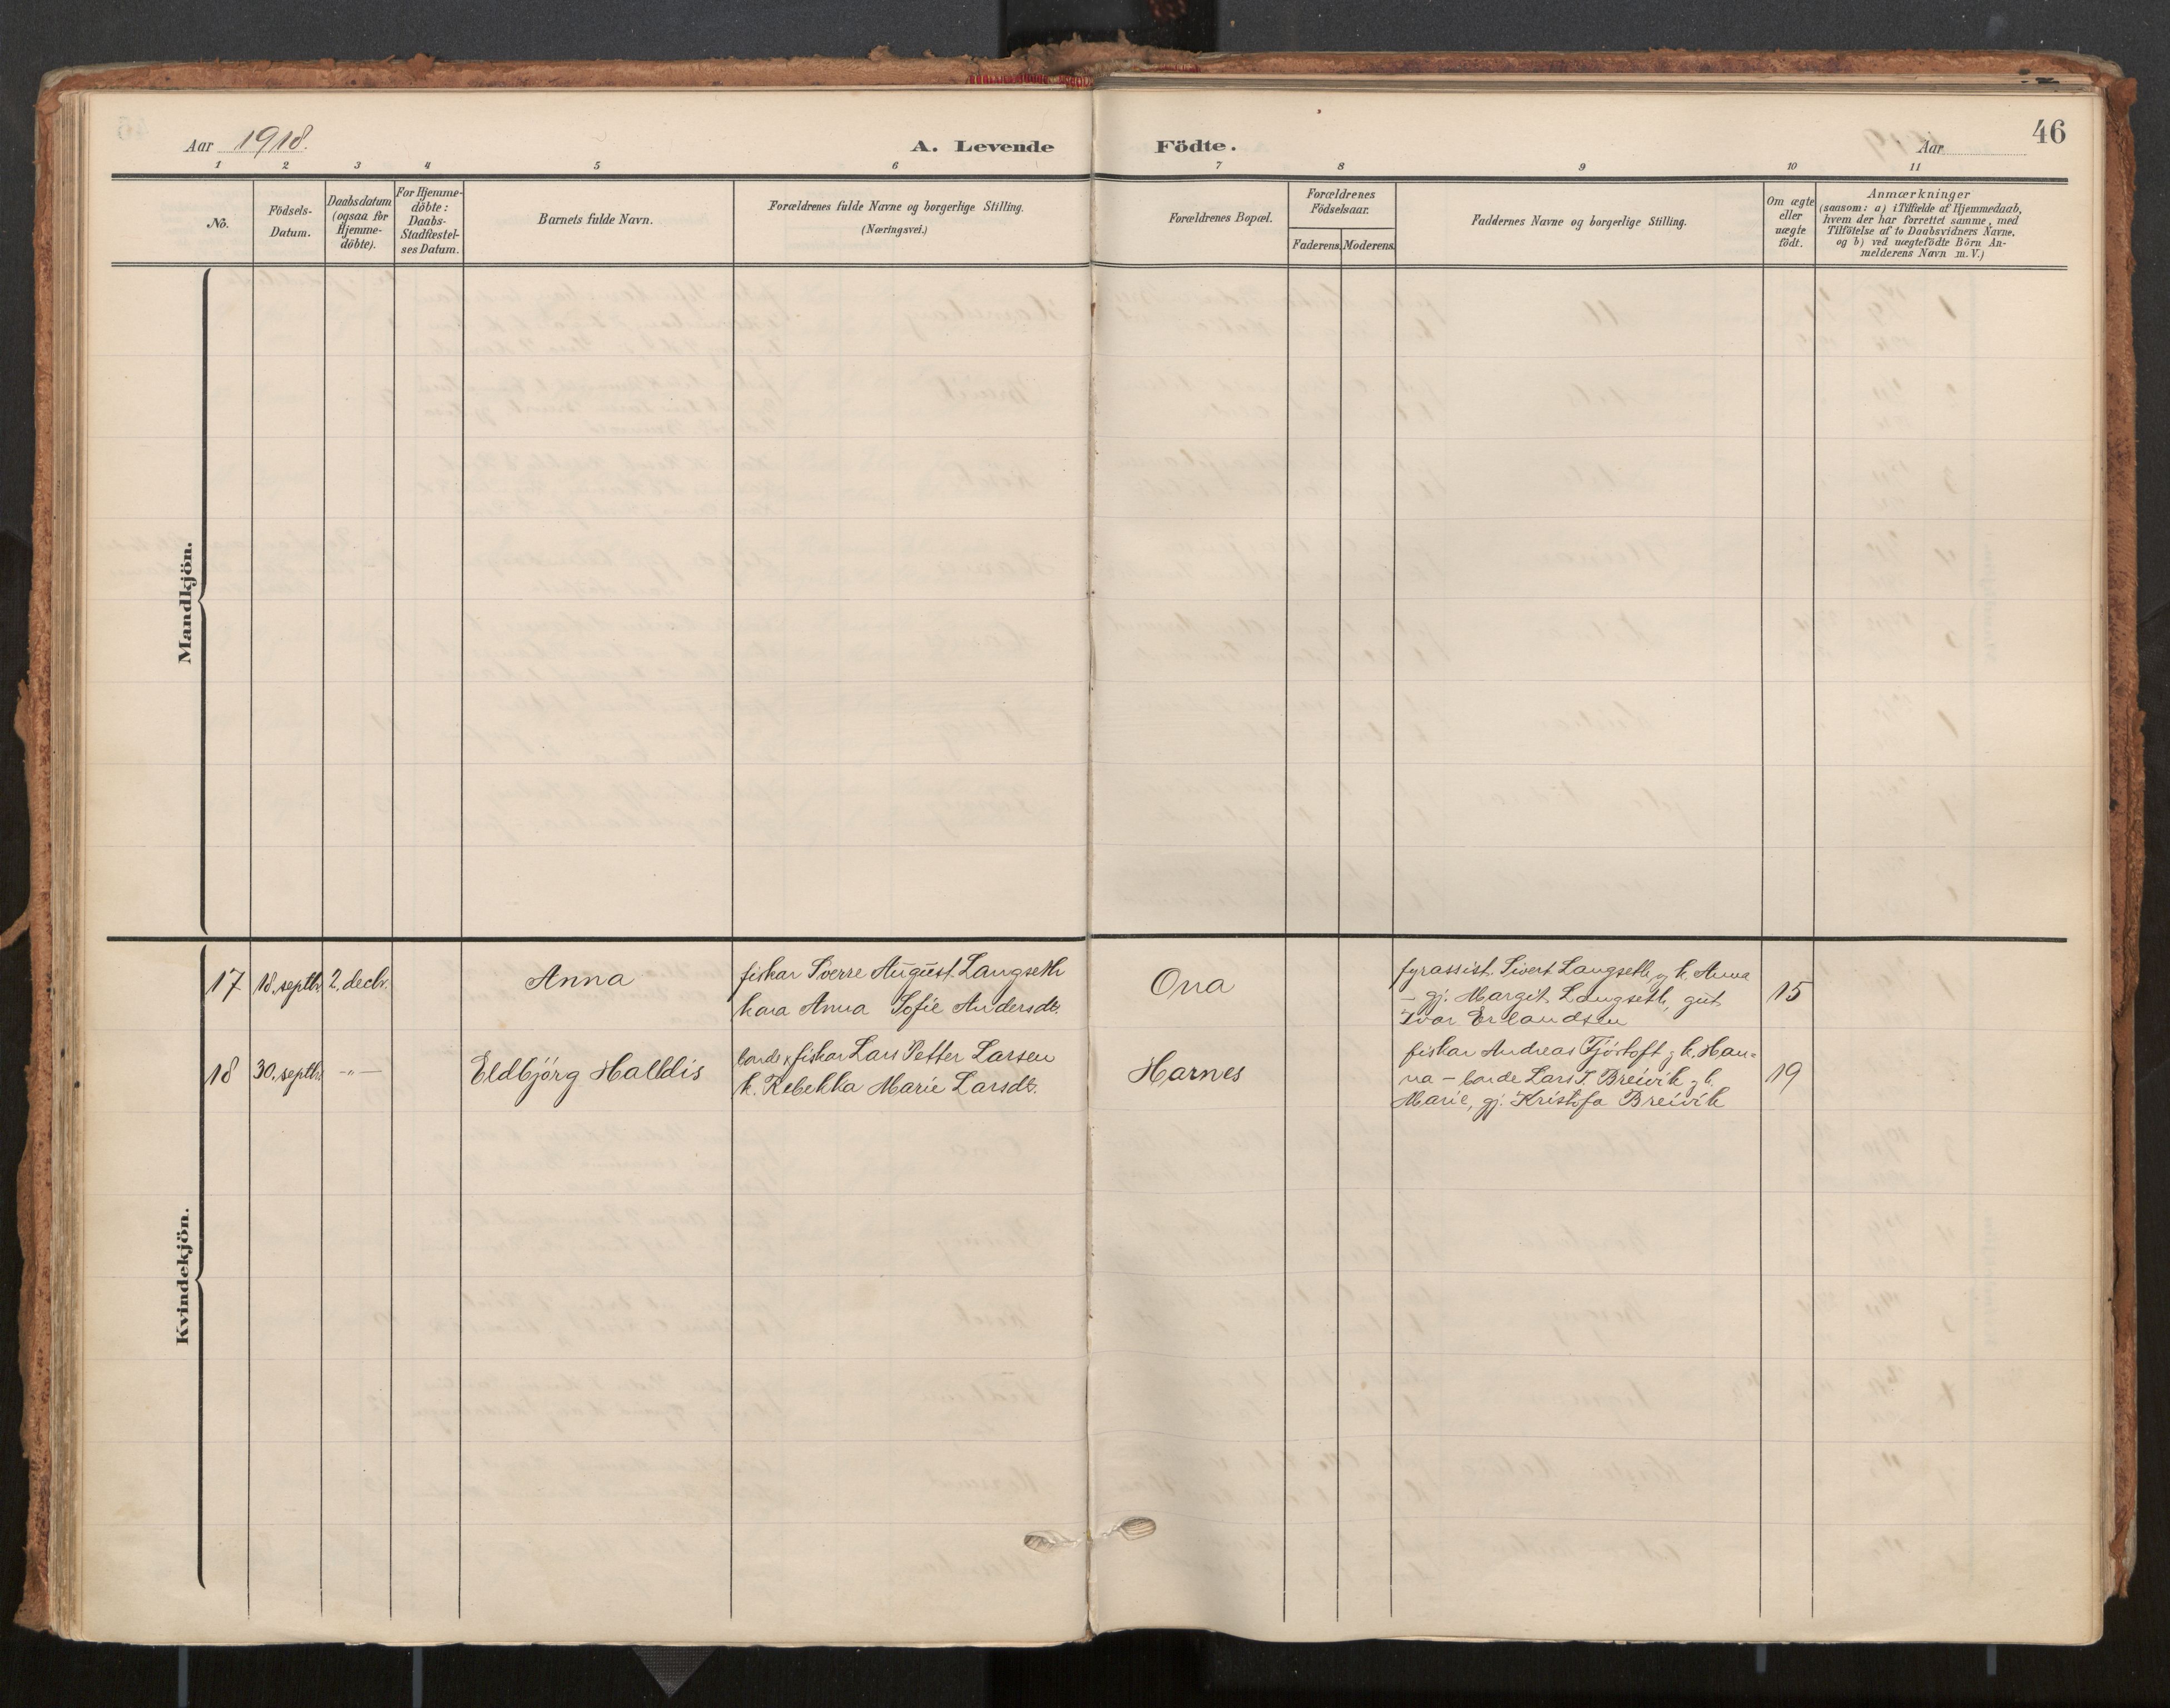 46
Aar 1918. A. Levende Födte. Aar
1 2 3 4 5 6 7 8 9 10 11
No.
Födsels-
Datum.
Daabsdatum
(ogsaa for
Hjemme-
döbte).
For Hjemme-
döbte:
Daabs-
Stadfæstel-
ses Datum.
Barnets fulde Navn.
Forældrenes fulde Navne og borgerlige Stilling.
(Næringsvei.)
Forældrenes Bopæl.
Forældrenes
Födselsaar.
Faderens. Moderens.
Faddernes Navne og borgerlige Stilling.
Om ægte
eller
uægte
födt.
Anmærkninger
(saasom: a) i Tilfælde af Hjemmedaab,
hvem der har forrettet samme, med
Tilföielse af to Daabsvidners Navne,
og b) ved uægtefödte Börn An-
melderens Navn m. V.)
Mandkjön.
Kvindekjön.
17 18. septbr. 2. decbr.
Anna
fiskar Sverre August Langseth
kona Anna Sofie Andersdt.
Ona
fyrassist. Sivert Langseth, g k. Anna
– gj. Margit Langseth, gut
Ivar Erlandsen
15
18 30. septbr. -"-
Eldbjörg Halldis
bonde & fiskar Lars Petter Larsen
k. Rebekka Marie Larsdt.
Harnes
fiskar Andreas Fjörtoft g k. Han=
na – bonde Lars T. Breivik g k.
Marie, gj. Kristofa Breivik
19